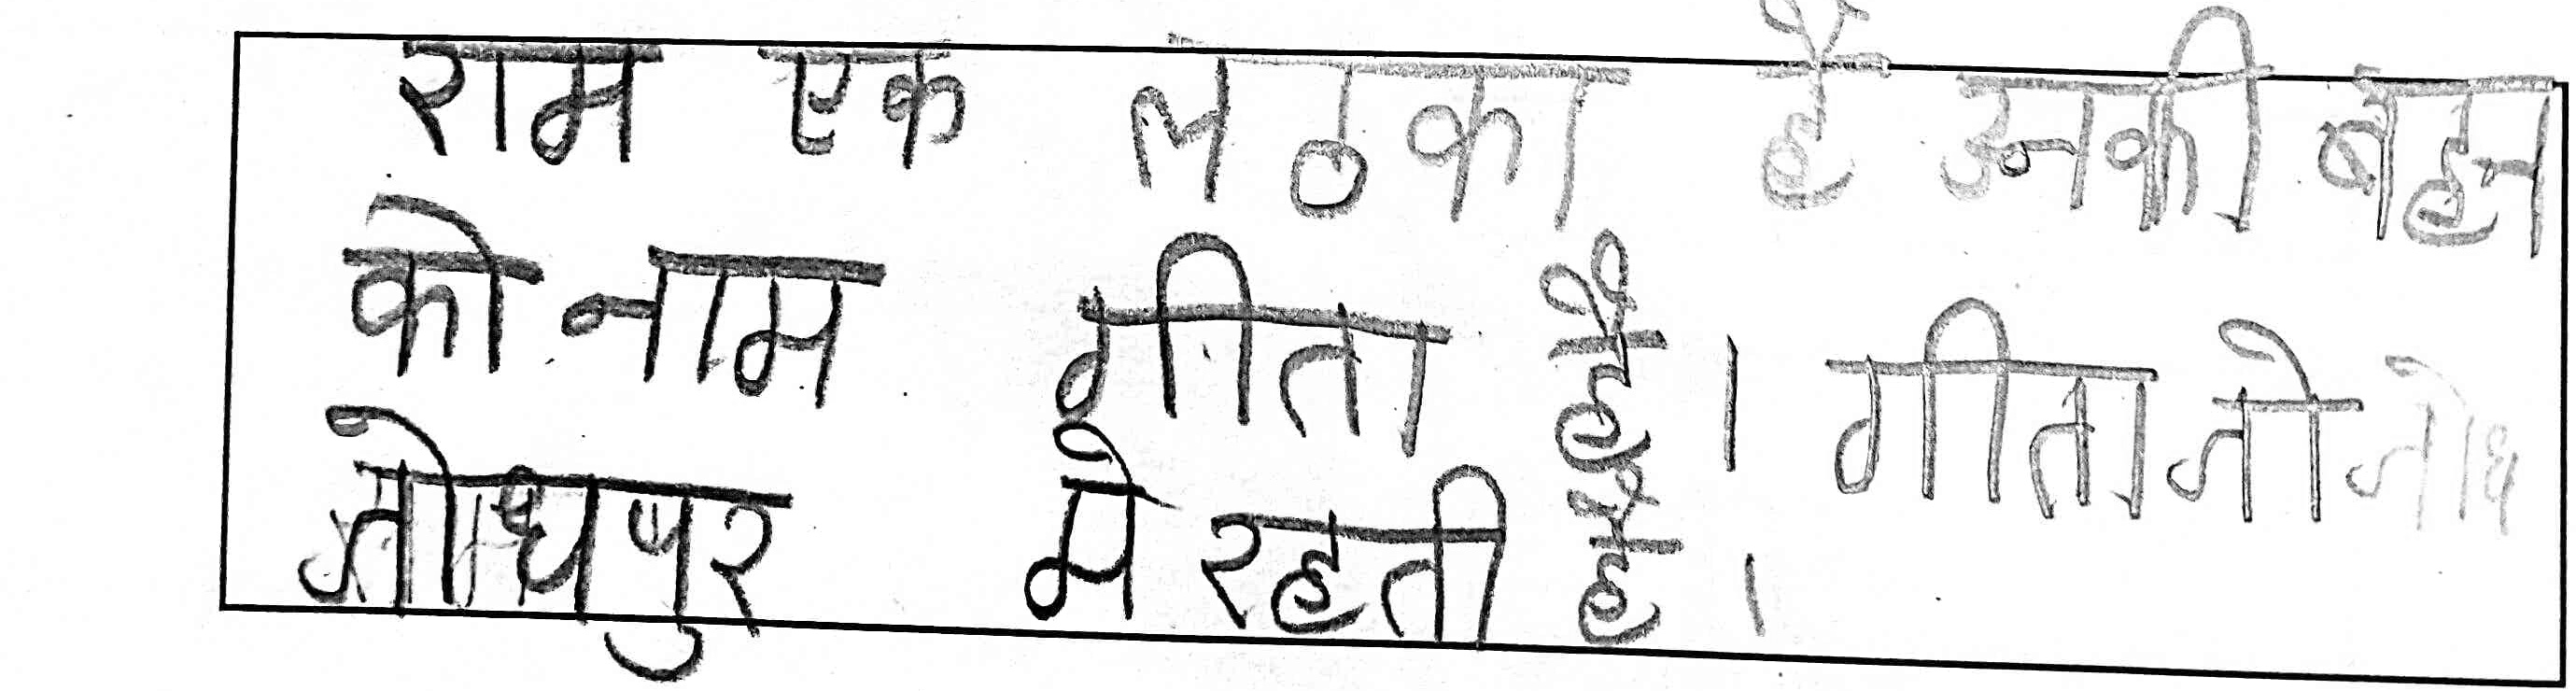 राम एक लठका है उनकी बहन
को नाम गीता है। गीता जो जोध
जोधपुर मे रहती है।